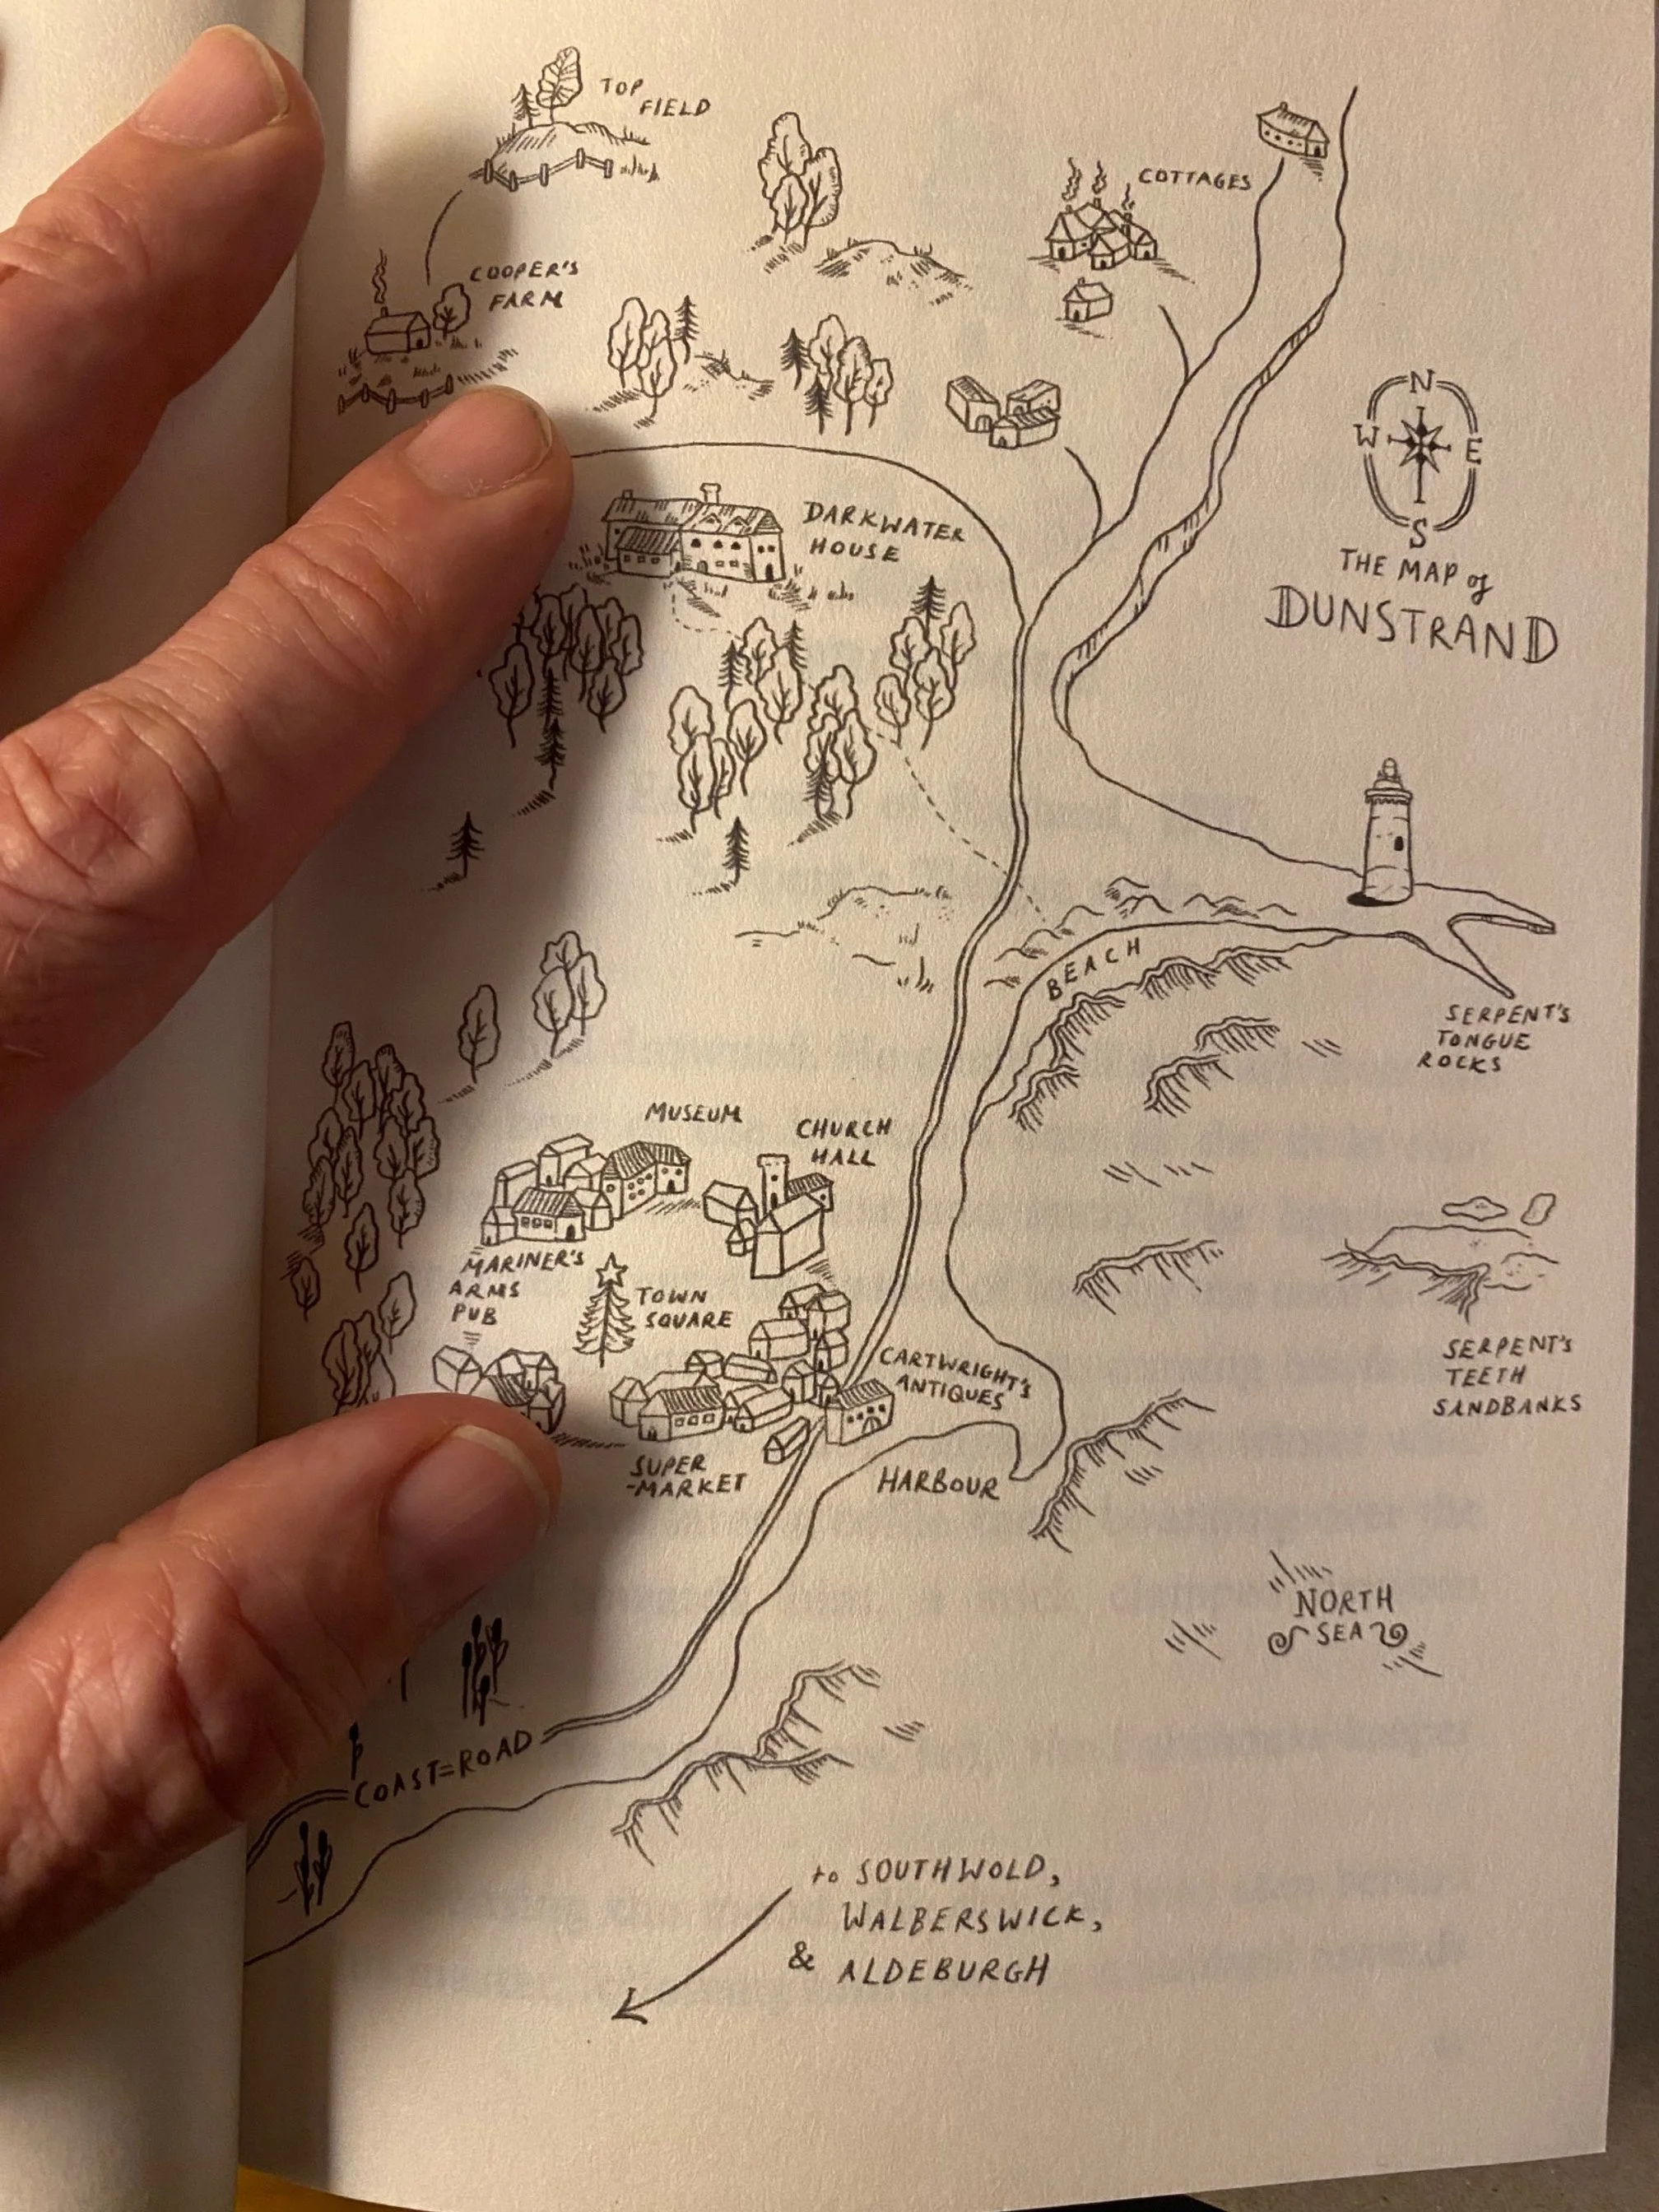 TOP
FIELD
COTTAGES
COOPER'S
FARM
N
W E
S
THE MAP of
DUNSTRAND
DARKWATER
HOUSE
BEACH
SERPENT'S
TONGUE
ROCKS
MUSEUM
CHURCH
HALL
MARINER'S
ARMS
PUB
TOWN
SQUARE
CARTWRIGHT'S
ANTIQUES
SERPENT'S
TEETH
SANDBANKS
SUPER
-MARKET
HARBOUR
NORTH
SEA
COAST=ROAD
to SOUTHWOLD,
WALBERSWICK,
& ALDEBURGH